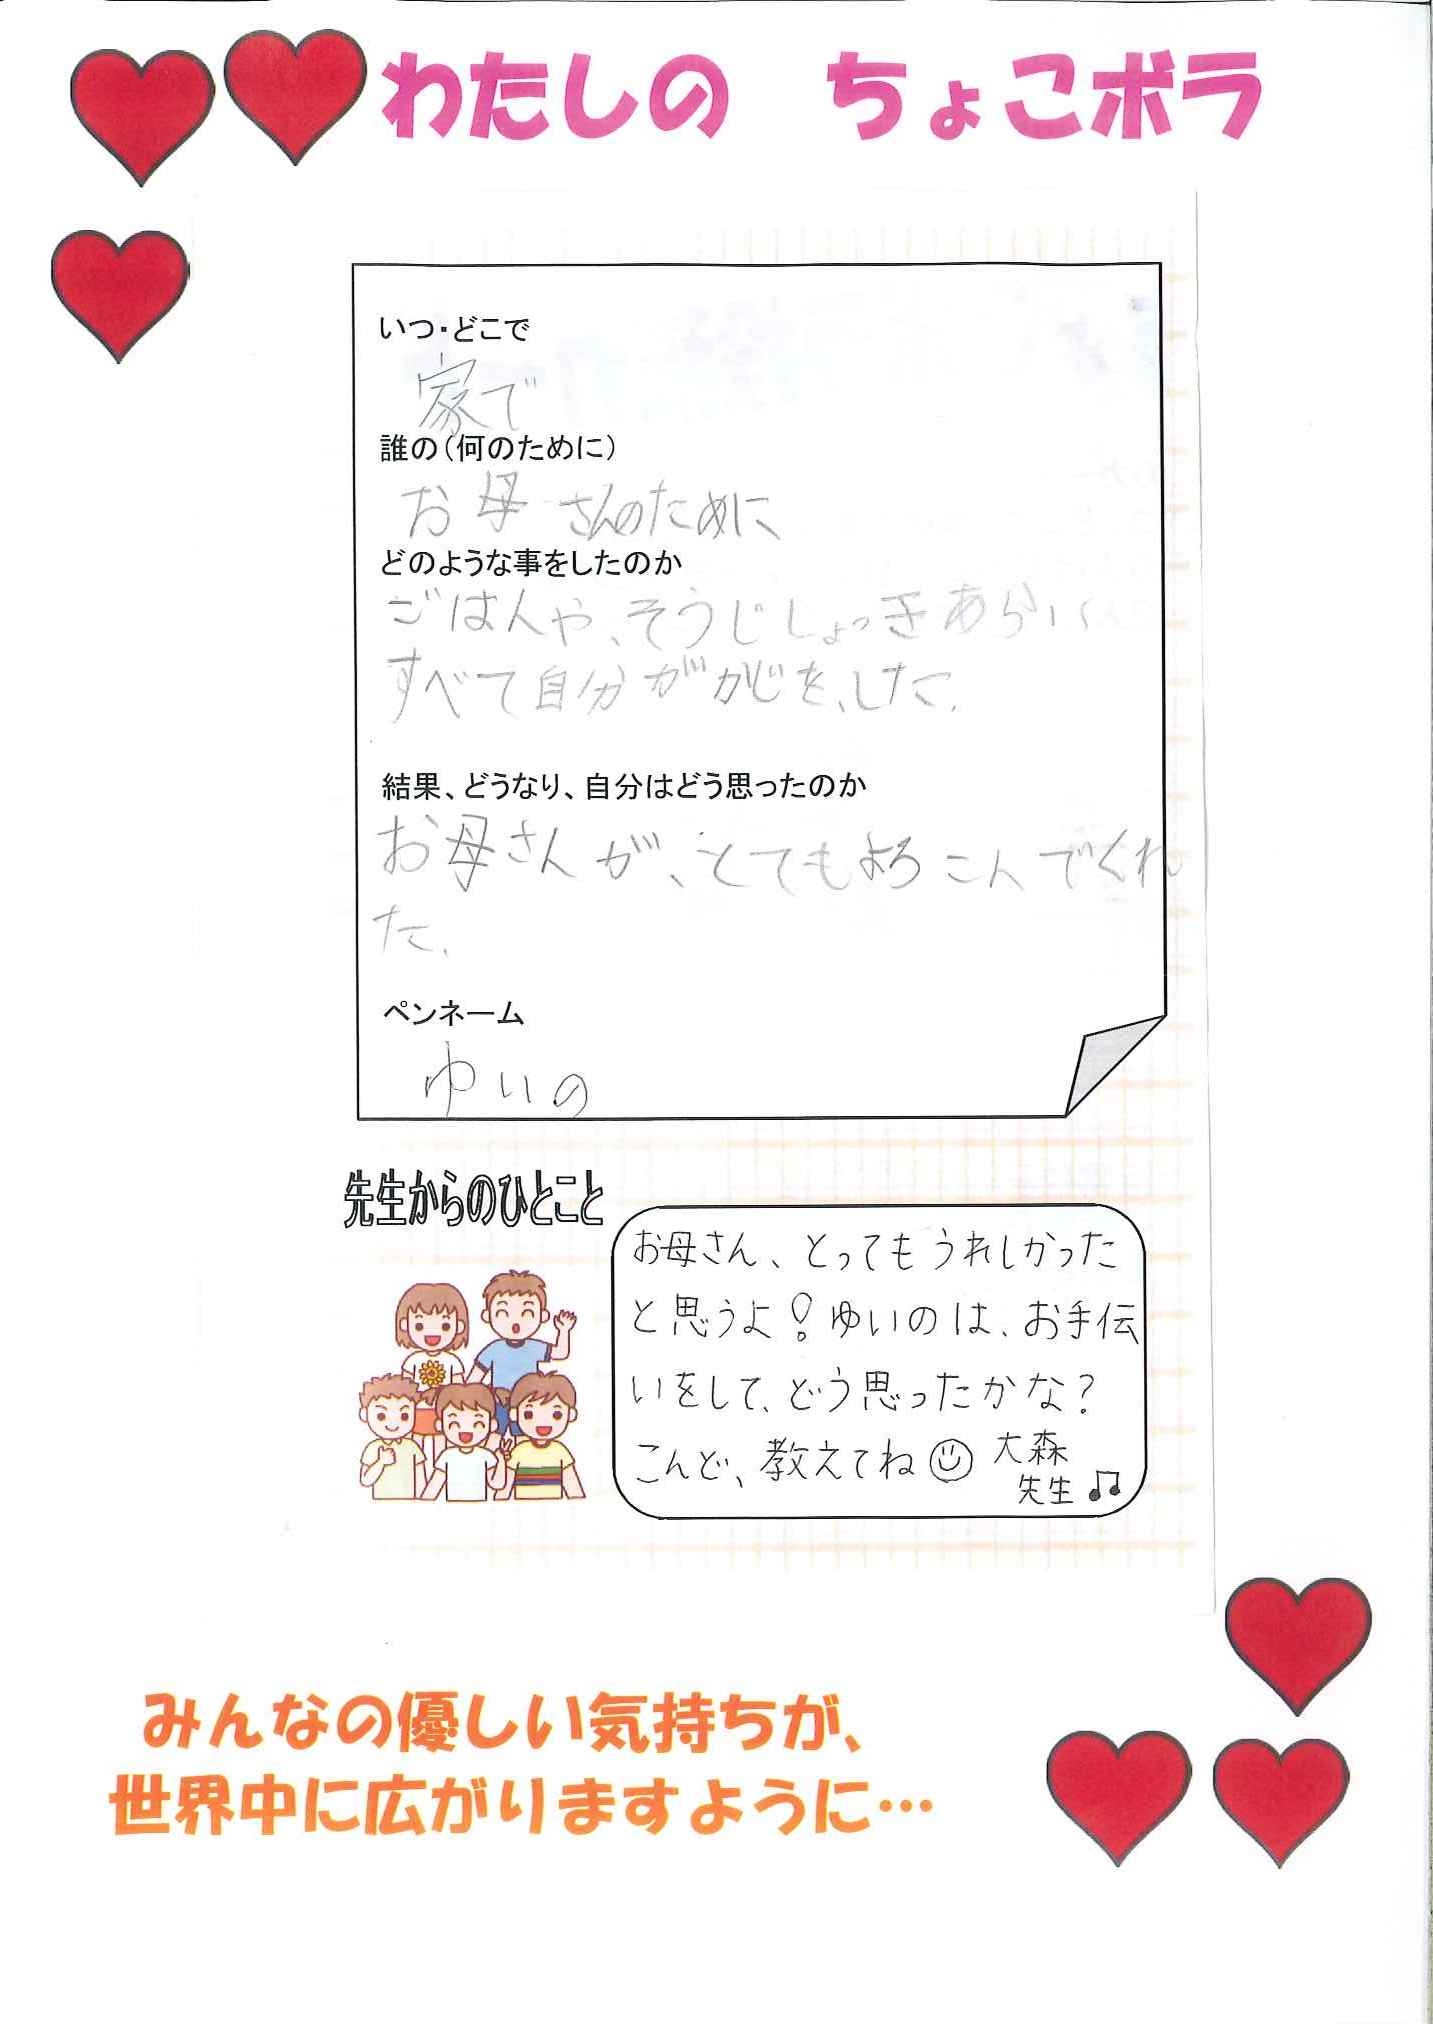 わたしの　ちょこボラ
いつ・どこで
家で
誰の（何のために）
お母さんのために
どのような事をしたのか
ごはんや、そうじしょっきあらい
すべて自分がかじを、した。
結果、どうなり、自分はどう思ったのか
お母さんが、とてもよろこんでくれ
た。
ペンネーム
ゆいの
先生からのひとこと
お母さん、とってもうれしかった
と思うよ！ゆいのは、お手伝
いをして、どう思ったかな？
こんど、教えてね 大森
先生♫
みんなの優しい気持ちが、
世界中に広がりますように…